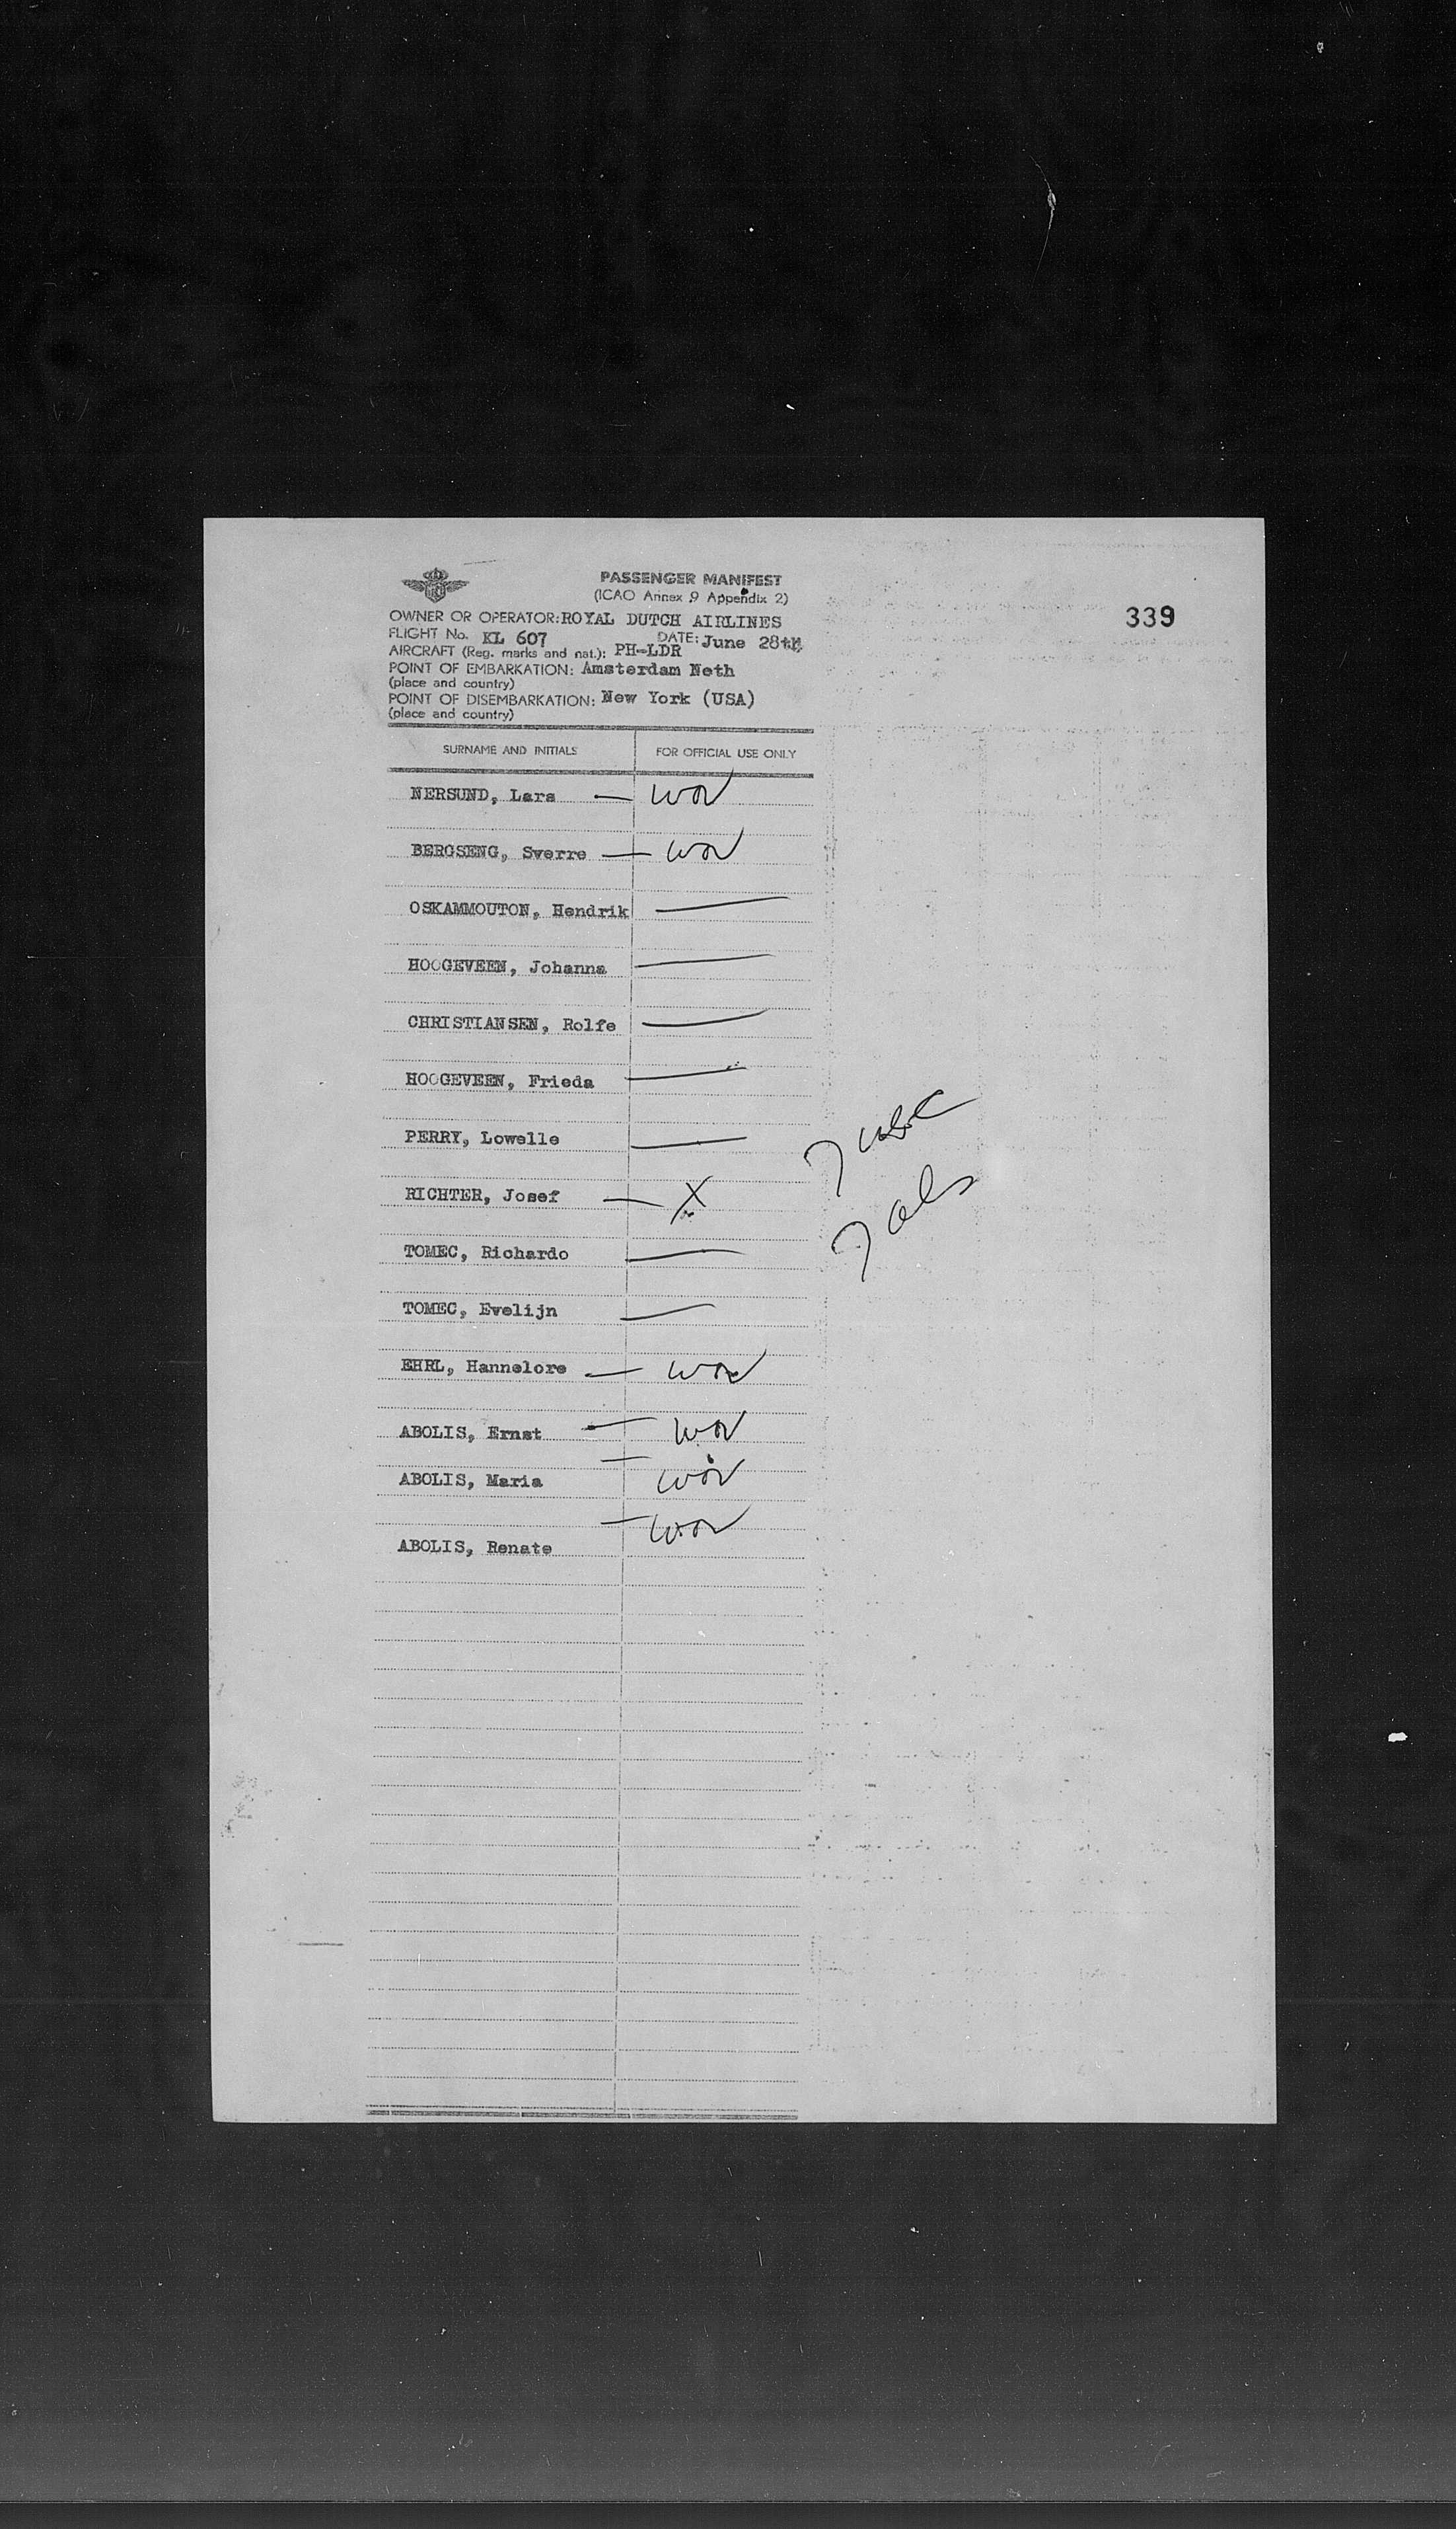 PASSENGER MANIFEST
(ICAO Annex 9 Appendix 2)
339
OWNER OR OPERATOR: ROYAL DUTCH AIRLINES
FLIGHT No. KL 607 DATE: June 28th
AIRCRAFT (Reg. marks and nat.): PH-LDR
POINT OF EMBARKATION: Amsterdam Neth
(place and country)
POINT OF DISEMBARKATION: New York (USA)
(place and country)
SURNAME AND INITIALS FOR OFFICIAL USE ONLY
NERSUND, Lars
BERGSENG, Sverre
OSKAMMOUTON, Hendrik
HOOGEVEEN, Johanna
CHRISTIANSEN, Rolfe
HOOGEVEEN, Frieda
PERRY, Lowelle
RICHTER, Josef X
TOMEC, Richardo
TOMEC, Evelijn
EHRL, Hannelore
ABOLIS, Ernst
ABOLIS, Maria
ABOLIS, Renate